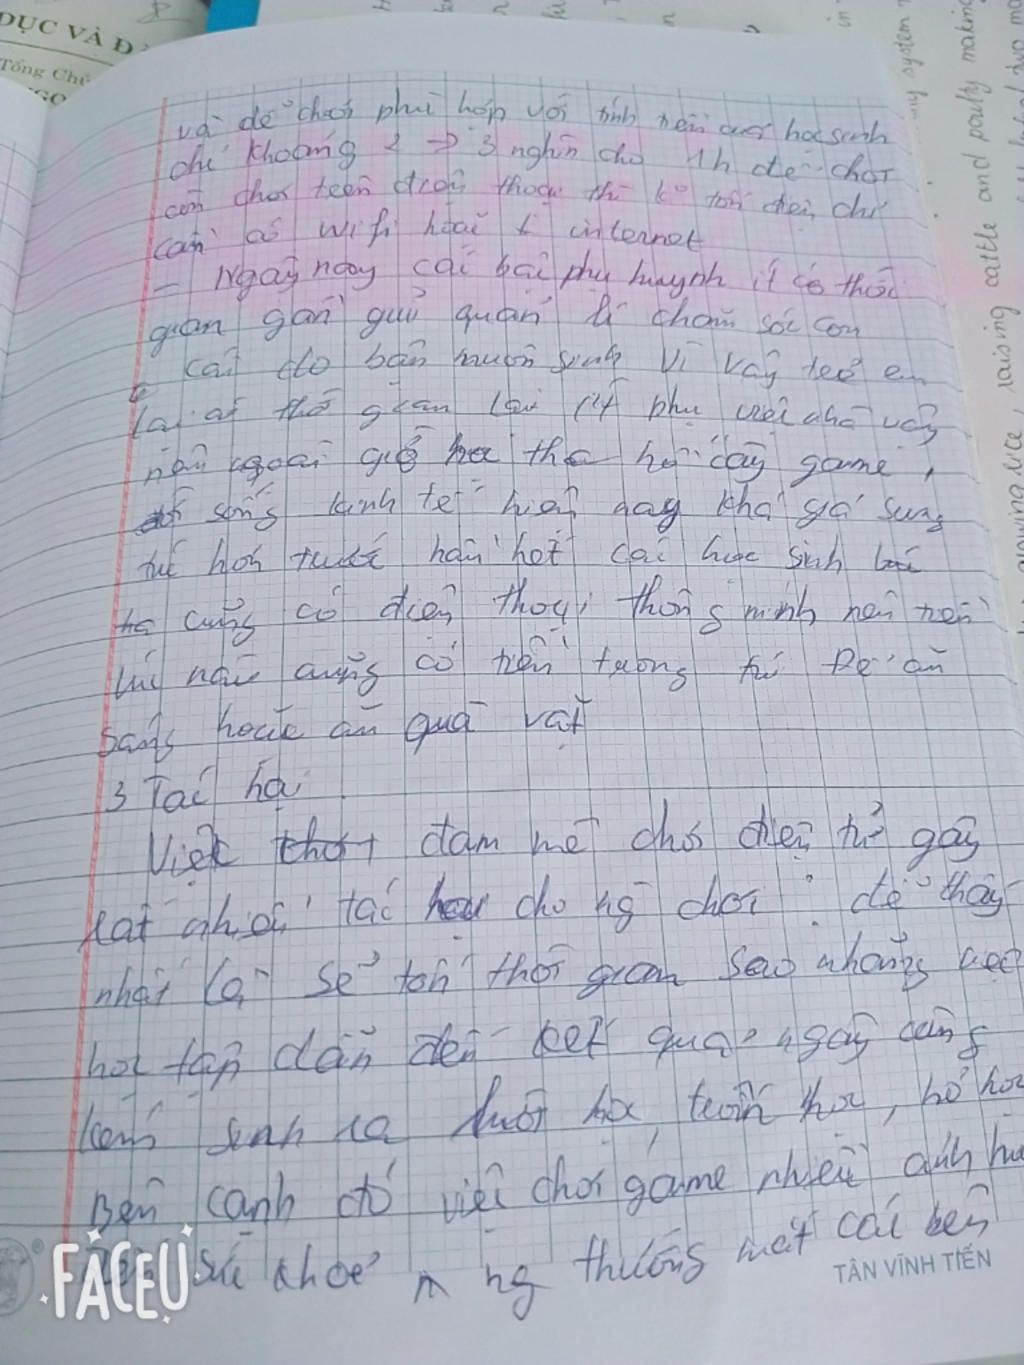 DỤC VÀ Đ
Tổng Chủ
NGO
in
my system
raising cattle and poutly making
growing rice,
và dễ chơi phù hợp với tính tiền của học sinh
chỉ khoảng 2 → 3 nghìn cho 1h để chơi
còn chơi trên điện thoại thì k tốn tiền, chỉ
cần có wifi hoặc internet
– Ngày nay các bậc phụ huynh ít có thời
gian gần gũi quản lí chăm sóc con
cái do bận mưu sinh vì vậy trẻ em
lại có thời gian lại ít phụ việc nhà vậy
nên ngoài giờ học thì cày game,
sống kinh tế hiện nay khá giả sung
túc hơn trước hầu hết các học sinh
cũng có điện thoại thông minh nên
lúc nào cũng có tiền trong túi để ăn
sáng hoặc ăn quà vặt
3 Tác hại
Việc đam mê chơi điện tử gây
rất nhiều tác hại cho ng chơi : dễ thấy
nhất là sẽ tốn thời gian sao nhãng việc
học tập dẫn đến kết quả ngày càng
kém sinh ra lười học, trốn học, bỏ học
Bên cạnh đó việc chơi game nhiều ảnh hư
sức khoẻ ng thường mắt các bện
TÂN VĨNH TIẾN
FACEU